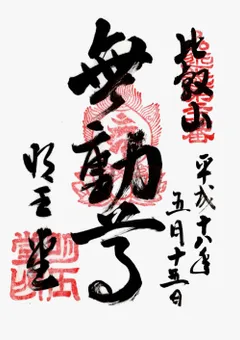 比叡山
平成十八年
五月十五日
無動尊
明王堂